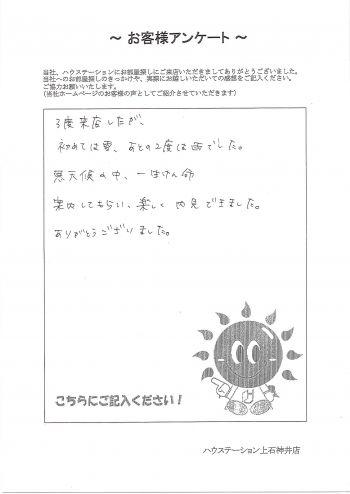 ～ お客様アンケート ～
当社、ハウステーションにお部屋探しにご来店いただきましてありがとうございました。
当社へのお部屋探しのきっかけや、実際にお越しいただいての感想をご記入ください。
ご協力お願いいたします。
(当社ホームページのお客様の声としてご紹介させていただきます)
3度来店したが、
初めては雪、あとの2度は雨でした。
悪天候の中、一生けん命
案内してもらい、楽しく内見できました。
ありがとうございました。
こちらにご記入ください！
ハウステーション上石神井店